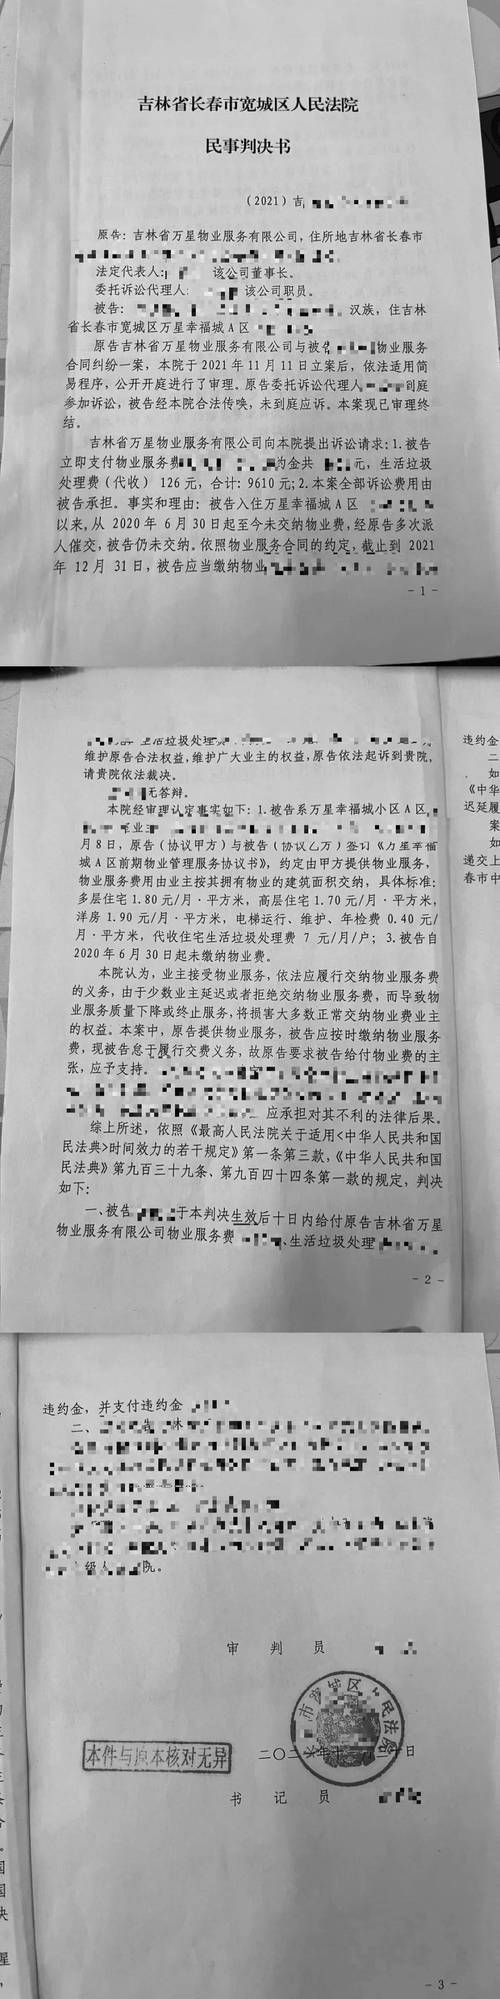 吉林省长春市宽城区人民法院
民事判决书
（2021）吉
原告：吉林省万星物业服务有限公司，住所地吉林省长春市
法定代表人： 该公司董事长。
委托诉讼代理人： 该公司职员。
被告： 汉族，住吉林
省长春市宽城区万星幸福城A区
原告吉林省万星物业服务有限公司与被告 物业服务
合同纠纷一案，本院于2021年11月11日立案后，依法适用简
易程序，公开开庭进行了审理。原告委托诉讼代理人 到庭
参加诉讼，被告经本院合法传唤，未到庭应诉。本案现已审理终
结。
吉林省万星物业服务有限公司向本院提出诉讼请求：1.被告
立即支付物业服务费 约金共 元，生活垃圾
处理费（代收）126元，合计：9610元；2.本案全部诉讼费用由
被告承担。事实和理由：被告入住万星幸福城A区
以来，从2020年6月30日起至今未交纳物业费，经原告多次派
人催交，被告仍未交纳。依照物业服务合同的约定，截止到2021
年12月31日，被告应当缴纳物业
- 1 -
生活垃圾处理费
维护原告合法权益，维护广大业主的权益，原告依法起诉到贵院，
请贵院依法裁决。
无答辩。
本院经审理认定事实如下：1.被告系万星幸福城小区A区
月8日，原告（协议甲方）与被告（协议乙方）签订《万星幸福
城A区前期物业管理服务协议书》，约定由甲方提供物业服务，
物业服务费用由业主按其拥有物业的建筑面积交纳，具体标准：
多层住宅1.80元/月·平方米，高层住宅1.70元/月·平方米，
洋房1.90元/月·平方米，电梯运行、维护、年检费0.40元/
月·平方米，代收住宅生活垃圾处理费 7 元/月/户；3.被告自
2020年6月30日起未缴纳物业费。
本院认为，业主接受物业服务，依法应履行交纳物业服务费
的义务，由于少数业主延迟或者拒绝交纳物业服务费，而导致物
业服务质量下降或终止服务，将损害大多数正常交纳物业费业主
的权益。本案中，原告提供物业服务，被告应按时缴纳物业服务
费，现被告怠于履行交费义务，故原告要求被告给付物业费的主
张，应予支持。
应承担对其不利的法律后果。
综上所述，依照《最高人民法院关于适用<中华人民共和国
民法典>时间效力的若干规定》第一条第三款，《中华人民共和国
民法典》第九百三十九条、第九百四十四条第一款的规定，判决
如下：
一、被告 于本判决生效后十日内给付原告吉林省万星
物业服务有限公司物业服务费 、生活垃圾处理
- 2 -
违约金
二
如
《中华
迟延履
案
如
递交上
春市中
违约金，并支付违约金
二、
级人 院。
审 判 员
市宽城区 民法院
本件与原本核对无异
二〇二 年十 月 十日
书 记 员
- 3 -